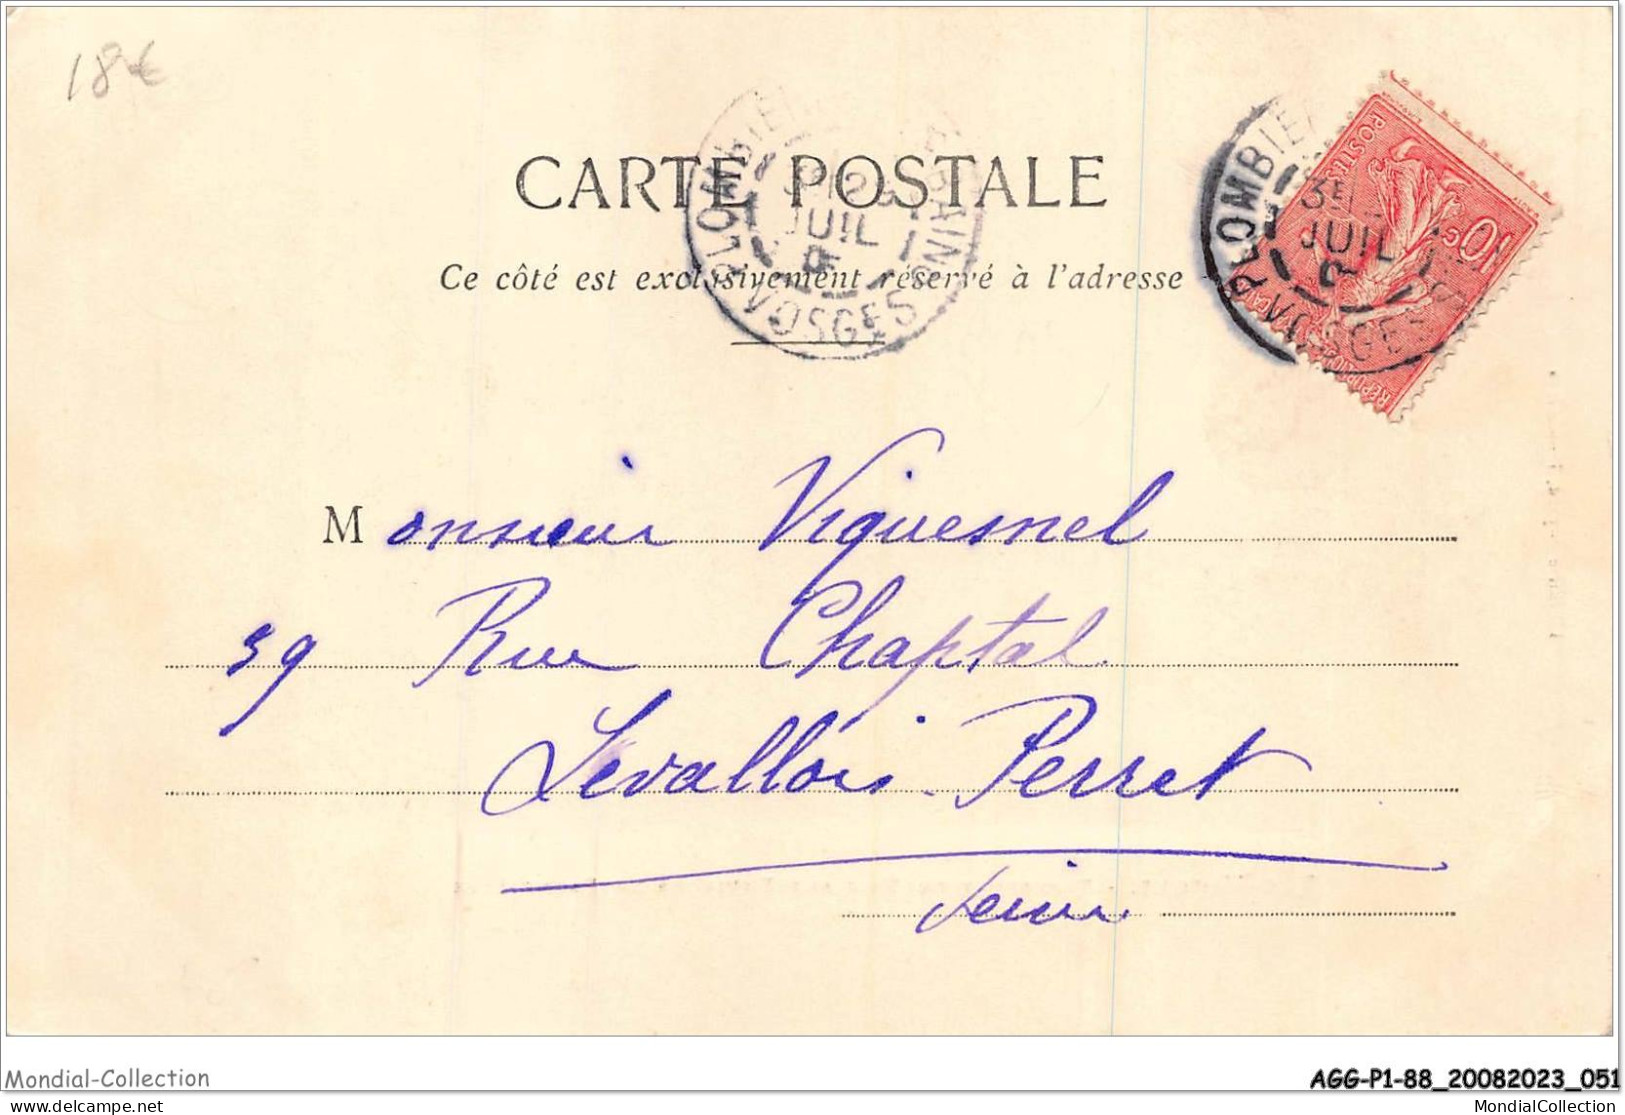 18€
CARTE POSTALE
Ce côté est exclusivement réservé à l'adresse
PLOMBIÈ BAINS
JUIL
VOSGES
PLOMBIÈ
JUIL
VOSGES
POSTES
10 c
Monsieur Viquesnel
59 Rue Chaptal
Levallois-Perret
Seine
Mondial-Collection
AGG-P1-88_20082023_051
delcampe.net
MondialCollection